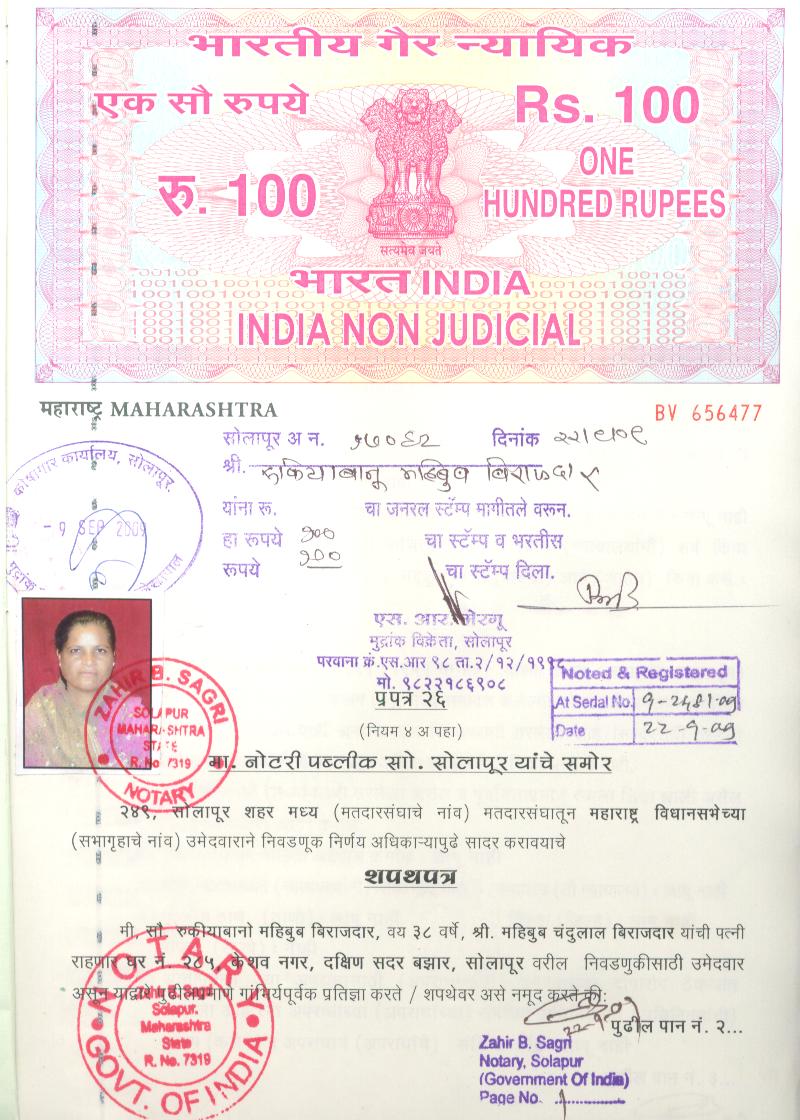 भारतीय गैर न्यायिक
एक सौ रुपये
Rs. 100
रु. 100
ONE
HUNDRED RUPEES
सत्यमेव जयते
भारत INDIA
INDIA NON JUDICIAL
महाराष्ट्र MAHARASHTRA
BV 656477
सोलापूर अ न. दिनांक
श्री. रुकियाबानू महिबुब बिराजदार
यांना रु. चा जनरल स्टॅम्प मागीतले वरून.
हा रूपये १०० चा स्टॅम्प व भरतीस
रूपये १०० चा स्टॅम्प दिला.
कोषागार कार्यालय, सोलापूर.
- 9 SEP 2009
मुद्रांक
एस. आर. मेरगू
मुद्रांक विक्रेता, सोलापूर
परवाना क्रं.एस.आर ९८ ता.२/१२/१९९८
मो. ९८२२१८६९०८
Noted & Registered
At Serial No. 9-2481-09
Date 22-9-09
प्रपत्र २६
(नियम ४ अ पहा)
ZAHIR B. SAGRI
SOLAPUR
MAHARASHTRA
STATE
R. No 7319
NOTARY
मा. नोटरी पब्लीक सो. सोलापूर यांचे समोर
२४९, सोलापूर शहर मध्य (मतदारसंघाचे नांव) मतदारसंघातून महाराष्ट्र विधानसभेच्या
(सभागृहाचे नांव) उमेदवाराने निवडणूक निर्णय अधिकाऱ्यापुढे सादर करावयाचे
शपथपत्र
मी सौ. रुकीयाबानो महिबुब बिराजदार, वय ३८ वर्षे, श्री. महिबुब चंदुलाल बिराजदार यांची पत्नी
राहणार घर नं. २८५, केशव नगर, दक्षिण सदर बझार, सोलापूर वरील निवडणुकीसाठी उमेदवार
असून याद्वारे पुढीलप्रमाणे गांभिर्यपूर्वक प्रतिज्ञा करते / शपथेवर असे नमूद करते की:
22-9-09
पुढील पान नं. २...
NOTARY
Zahir B. Sagri
Solapur.
Maharashtra
State
R. No. 7319
GOVT. OF INDIA
Zahir B. Sagri
Notary, Solapur
(Government Of India)
Page No. 1